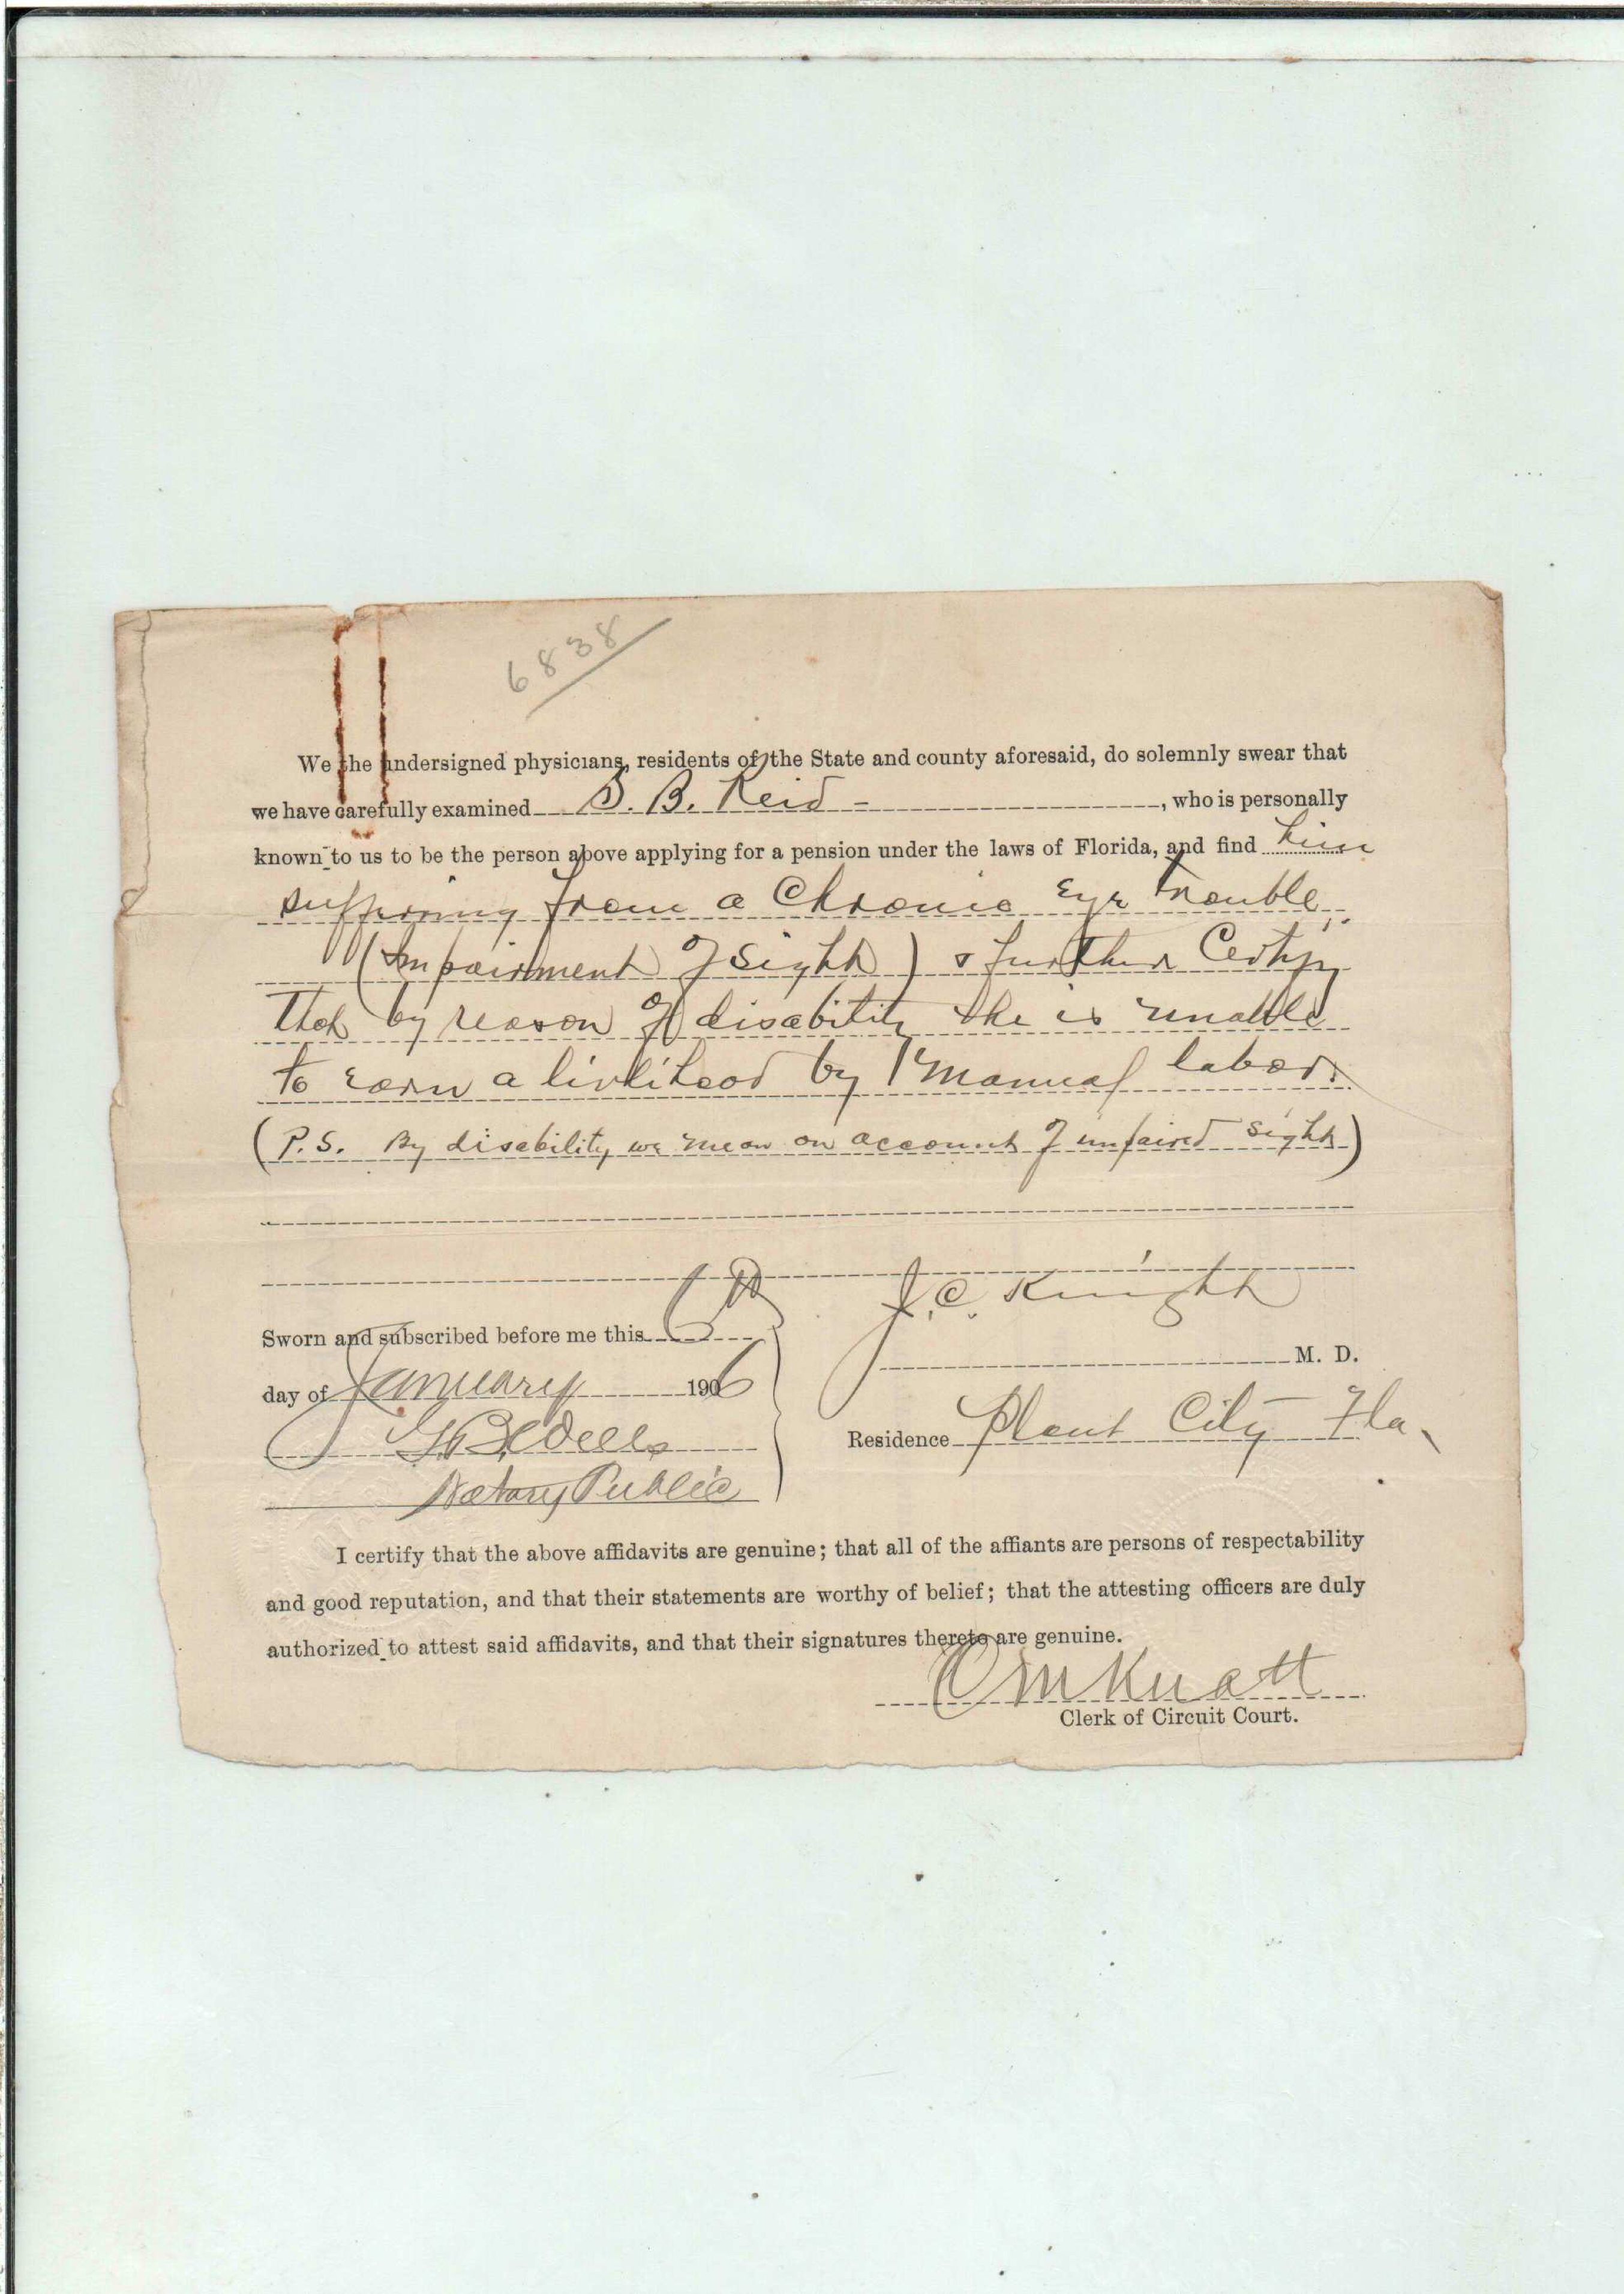 6838
We the undersigned physicians, residents of the State and county aforesaid, do solemnly swear that
we have carefully examined S. B. Reid, who is personally
known to us to be the person above applying for a pension under the laws of Florida, and find him
suffering from a Chronic Eye trouble
(Impairment of Sight) & further Certify
that by reason of disability he is unable
to earn a livlihood by manual labor.
(P.S. By disability we mean on account of impaired sight)
J. C. Knight
Sworn and subscribed before me this 6th
M. D.
day of January 1906
Residence Plant City Fla
Wells
Notary Public
I certify that the above affidavits are genuine; that all of the affiants are persons of respectability
and good reputation, and that their statements are worthy of belief; that the attesting officers are duly
authorized to attest said affidavits, and that their signatures thereto are genuine.
Clerk of Circuit Court.